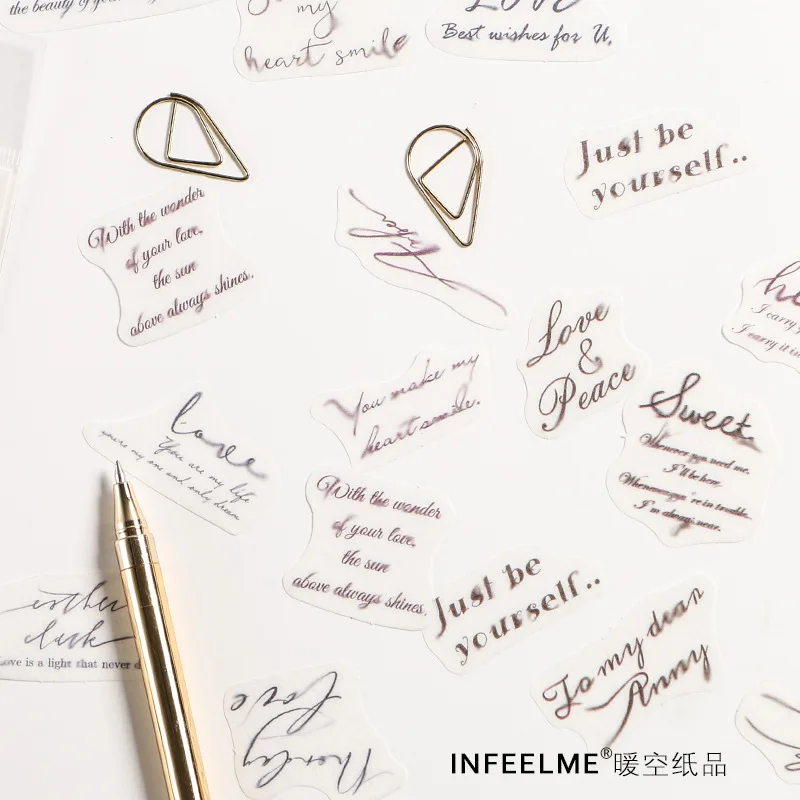 the beauty of
my
heart smile
LOVE
Best wishes for U,
Just be
yourself..
With the wonder
of your love,
the sun
above always shines.
Love
&
Peace
I carry
I carry it in
You make my
heart smile.
Sweet
Whenever you need me.
I'll be here.
Whenever you're in trouble.
I'm always near.
love
You are my life
you're my one and only dream
With the wonder
of your love,
the sun
above always shines.
Just be
yourself..
To my dear
Anny
Love is a light that never
Love
INFEELME®暖空纸品